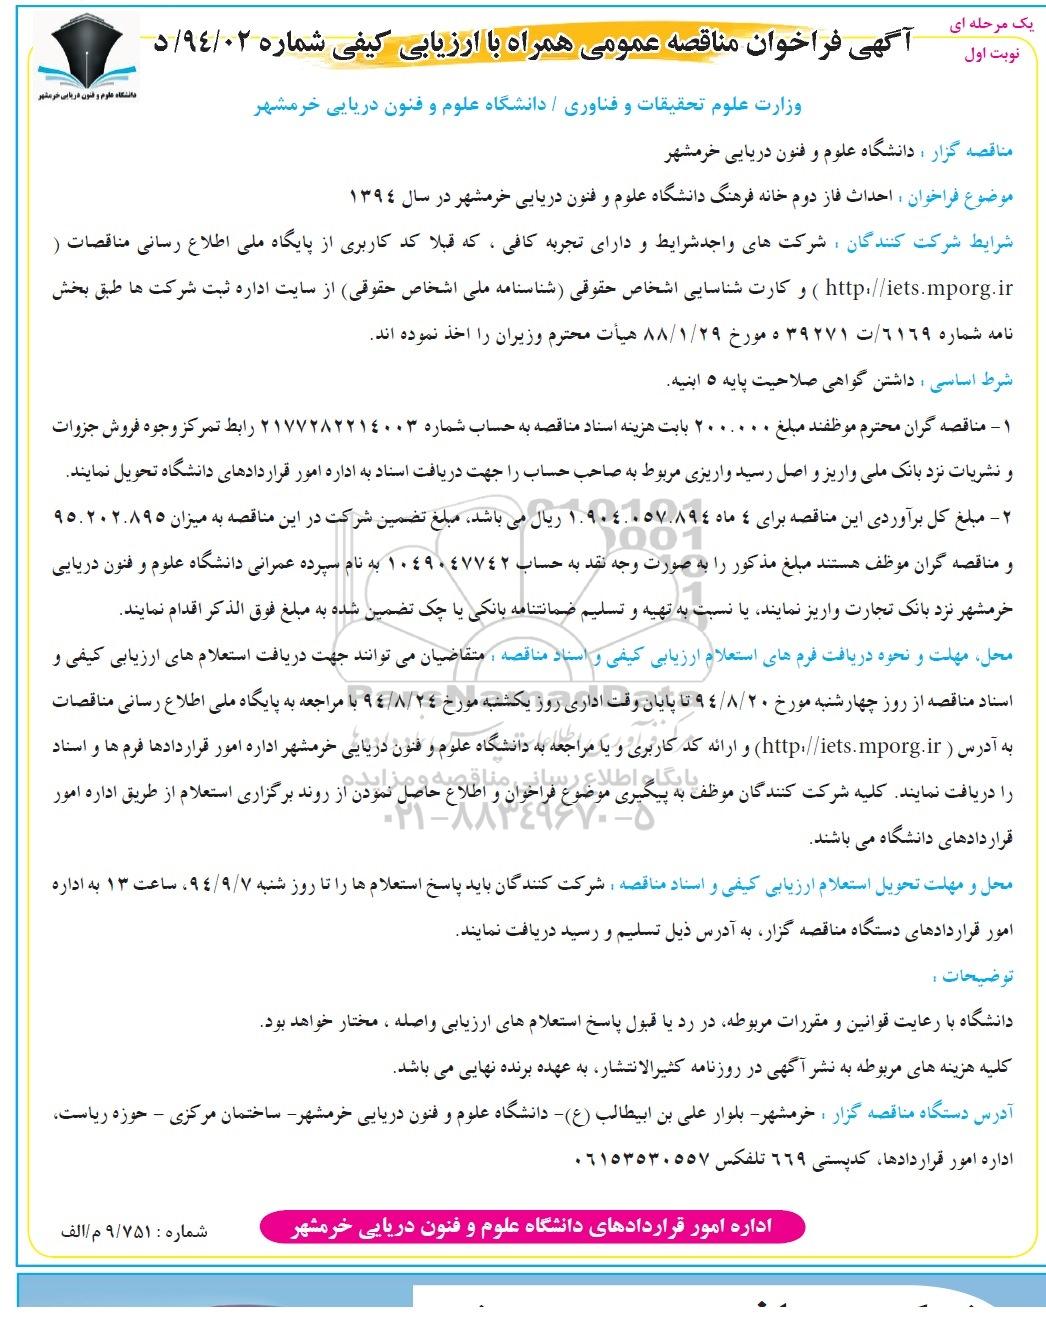 یک مرحله ای
نوبت اول
آگهی فراخوان مناقصه عمومی همراه با ارزیابی کیفی شماره ۹۴/۰۲/ د
دانشگاه علوم و فنون دریایی خرمشهر
وزارت علوم تحقیقات و فناوری / دانشگاه علوم و فنون دریایی خرمشهر
مناقصه گزار : دانشگاه علوم و فنون دریایی خرمشهر
موضوع فراخوان : احداث فاز دوم خانه فرهنگ دانشگاه علوم و فنون دریایی خرمشهر در سال ۱۳۹۴
شرایط شرکت کنندگان : شرکت های واجدشرایط و دارای تجربه کافی ، که قبلا کد کاربری از پایگاه ملی اطلاع رسانی مناقصات (
http://iets.mporg.ir ) و کارت شناسایی اشخاص حقوقی (شناسنامه ملی اشخاص حقوقی) از سایت اداره ثبت شرکت ها طبق بخش
نامه شماره ۶۱۶۹/ت ۳۹۲۷۱ ه مورخ ۸۸/۱/۲۹ هیأت محترم وزیران را اخذ نموده اند.
شرط اساسی : داشتن گواهی صلاحیت پایه ۵ ابنیه.
۱- مناقصه گران محترم موظفند مبلغ ۲۰۰.۰۰۰ بابت هزینه اسناد مناقصه به حساب شماره ۲۱۷۷۲۸۲۲۱۴۰۰۳ رابط تمرکز وجوه فروش جزوات
و نشریات نزد بانک ملی واریز و اصل رسید واریزی مربوط به صاحب حساب را جهت دریافت اسناد به اداره امور قراردادهای دانشگاه تحویل نمایند.
۲- مبلغ کل برآوردی این مناقصه برای ۴ ماه ۱.۹۰۴.۰۵۷.۸۹۴ ریال می باشد، مبلغ تضمین شرکت در این مناقصه به میزان ۹۵.۲۰۲.۸۹۵
و مناقصه گران موظف هستند مبلغ مذکور را به صورت وجه نقد به حساب ۱۰۴۹۰۴۷۷۴۲ به نام سپرده عمرانی دانشگاه علوم و فنون دریایی
خرمشهر نزد بانک تجارت واریز نمایند، یا نسبت به تهیه و تسلیم ضمانتنامه بانکی یا چک تضمین شده به مبلغ فوق الذکر اقدام نمایند.
محل، مهلت و نحوه دریافت فرم های استعلام ارزیابی کیفی و اسناد مناقصه : متقاضیان می توانند جهت دریافت استعلام های ارزیابی کیفی و
اسناد مناقصه از روز چهارشنبه مورخ ۹۴/۸/۲۰ تا پایان وقت اداری روز یکشنبه مورخ ۹۴/۸/۲۴ با مراجعه به پایگاه ملی اطلاع رسانی مناقصات
به آدرس ( http://iets.mporg.ir) و ارائه کد کاربری و یا مراجعه به دانشگاه علوم و فنون دریایی خرمشهر اداره امور قراردادها فرم ها و اسناد
را دریافت نمایند. کلیه شرکت کنندگان موظف به پیگیری موضوع فراخوان و اطلاع حاصل نمودن از روند برگزاری استعلام از طریق اداره امور
قراردادهای دانشگاه می باشند.
محل و مهلت تحویل استعلام ارزیابی کیفی و اسناد مناقصه : شرکت کنندگان باید پاسخ استعلام ها را تا روز شنبه ۹۴/۹/۷، ساعت ۱۳ به اداره
امور قراردادهای دستگاه مناقصه گزار، به آدرس ذیل تسلیم و رسید دریافت نمایند.
توضیحات :
دانشگاه با رعایت قوانین و مقررات مربوطه، در رد یا قبول پاسخ استعلام های ارزیابی واصله ، مختار خواهد بود.
کلیه هزینه های مربوطه به نشر آگهی در روزنامه کثیرالانتشار، به عهده برنده نهایی می باشد.
آدرس دستگاه مناقصه گزار : خرمشهر- بلوار علی بن ابیطالب (ع)- دانشگاه علوم و فنون دریایی خرمشهر- ساختمان مرکزی - حوزه ریاست،
اداره امور قراردادها، کدپستی ۶۶۹ تلفکس ۰۶۱۵۳۵۳۰۵۵۷
اداره امور قراردادهای دانشگاه علوم و فنون دریایی خرمشهر
شماره : ۹/۷۵۱ م/الف
ParsNamadData
پایگاه اطلاع رسانی مناقصه و مزایده
۰۲۱-۸۸۳۴۹۶۷۰-۵